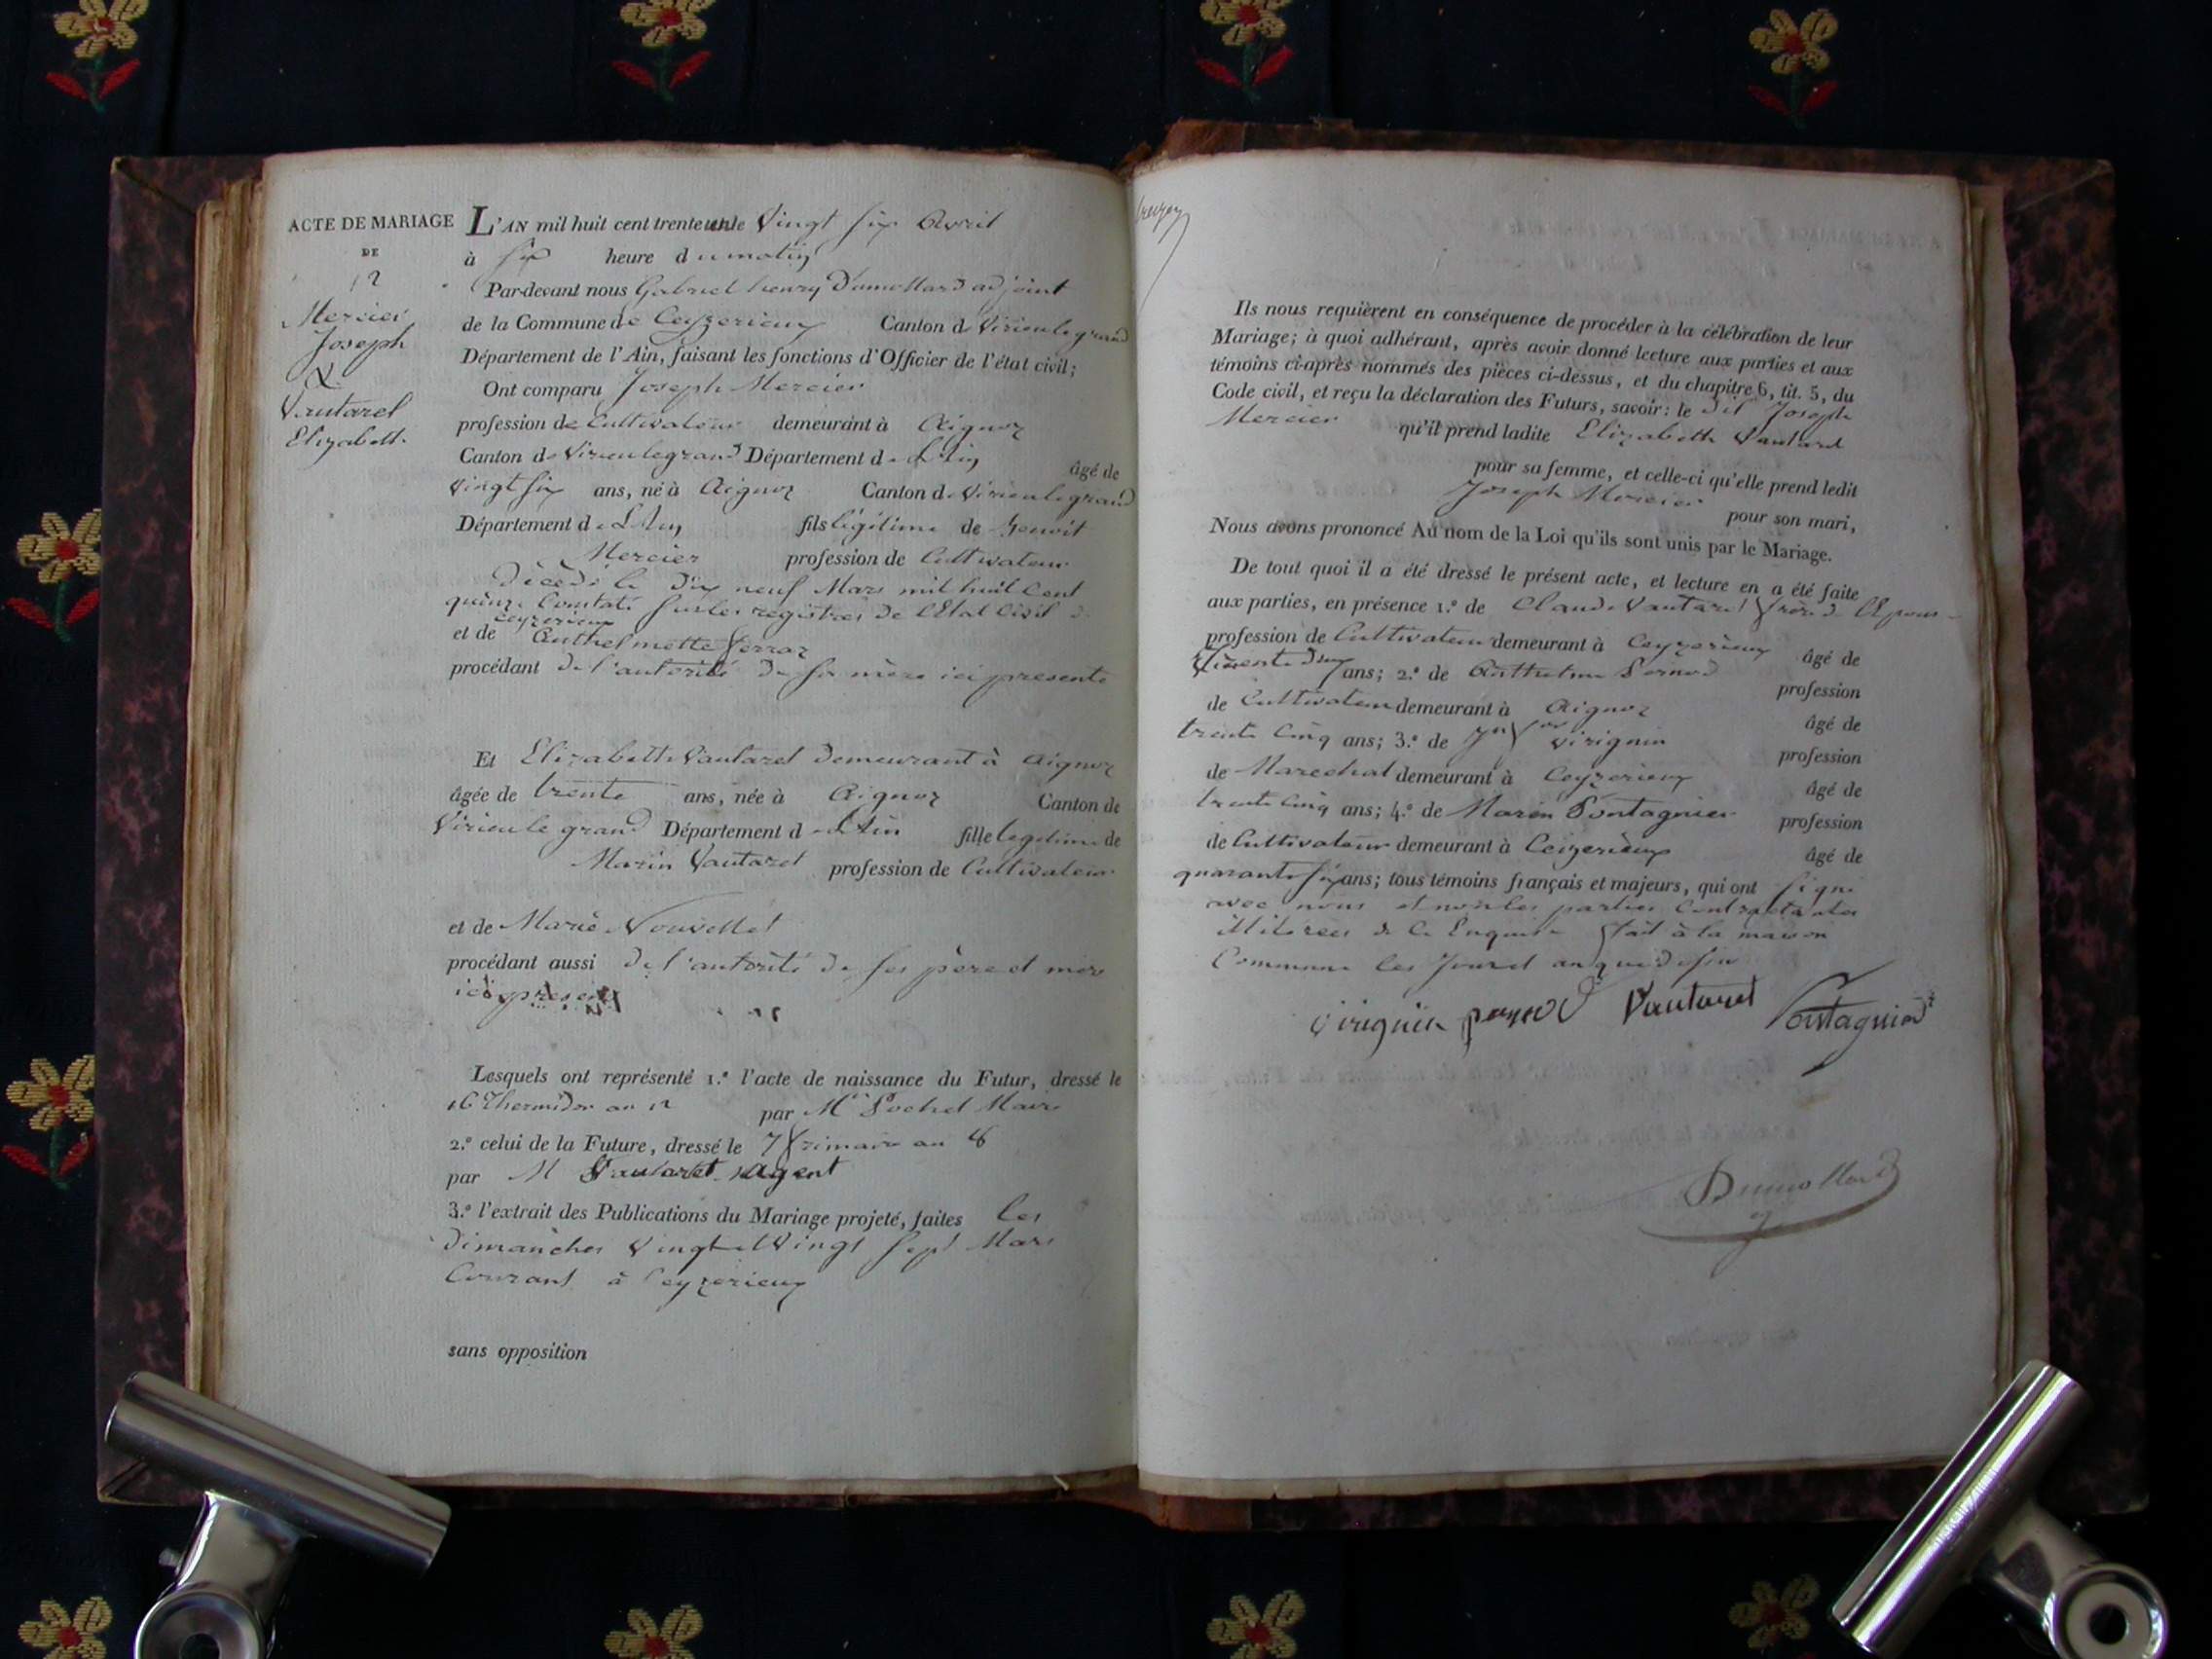 ACTE DE MARIAGE
DE
12
Mercier
Joseph
&
Vautaret
Elizabeth
L'AN mil huit cent trente un le Vingt six Avril
à six heure du matin
Par-devant nous Gabriel henry Dumollard adjoint
de la Commune de Ceyzerieux Canton de Virieulegrand
Département de l'Ain, faisant les fonctions d'Officier de l'état civil;
Ont comparu Joseph Mercier
profession de Cultivateur demeurant à Aignoz
Canton de Virieulegrand Département de L'Ain âgé de
vingt six ans, né à Aignoz Canton de Virieulegrand
Département de L'Ain fils légitime de Benoit
Mercier profession de Cultivateur
décédé le Dix neuf Mars mil huit Cent
quinze Constaté sur les registres de l'Etat Civil de
Ceyzerieux
et de Anthelmette ferraz
procédant de l'autorité de sa mère ici presente
Et Elizabeth Vautaret demeurant à Aignoz
âgée de trente ans, née à Aignoz Canton de
Virieu le grand Département de L'Ain fille legitime de
Marin Vautaret profession de Cultivateur
et de Marie Nouvellet
procédant aussi de l'autorité de ses père et mere
ici present
Lesquels ont représenté 1.° l'acte de naissance du Futur, dressé le
16 Thermidor an 12 par Mr Pochet Maire
2.° celui de la Future, dressé le 7 frimaire an 8
par M Vautaret agent
3.° l'extrait des Publications du Mariage projeté, faites les
Dimanches Vingt et Vingt sept Mars
Courant à Ceyzerieux
sans opposition
Ils nous requièrent en conséquence de procéder à la célébration de leur
Mariage; à quoi adhérant, après avoir donné lecture aux parties et aux
témoins ci-après nommés des pièces ci-dessus, et du chapitre 6, tit. 5, du
Code civil, et reçu la déclaration des Futurs, savoir: le dit Joseph
Mercier qu'il prend ladite Elizabeth Vautaret
pour sa femme, et celle-ci qu'elle prend ledit
Joseph Mercier pour son mari,
Nous avons prononcé Au nom de la Loi qu'ils sont unis par le Mariage.
De tout quoi il a été dressé le présent acte, et lecture en a été faite
aux parties, en présence 1.° de Claude Vautaret frère de l'Epouse
profession de Cultivateur demeurant à Ceyzerieux âgé de
ans; 2.° de Anthelme profession
de Cultivateur demeurant à Aignoz âgé de
trente Cinq ans; 3.° de Virignin profession
de Marechal demeurant à Ceyzerieux âgé de
trente Cinq ans; 4.° de Marin Pontagnier profession
de Cultivateur demeurant à Ceizerieux âgé de
quarante six ans; tous témoins français et majeurs, qui ont signé
avec nous et non les parties Contractantes
illitérées de ce Enquises fait à la maison
Commune les Jour et an que dessus
Virignin Vautaret Pontagnier
Dumollard